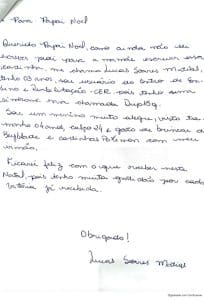 Para Papai Noel
Querido Papai Noel, como ainda não sei
escrever pedi para a mamãe escrever essa
cartinha. me chamo Lucas Soares Maciel,
tenho 03 anos, sou usuário do Centro de Ensino
e Reabilitação - CER pois tenho uma
síndrome rara chamada Dup15q.
Sou um menino muito alegre, visto ta-
manho 04 anos, calço 24 e gosto de brincar de
Beyblade e cartinhas Pokemon com meu
irmão.
Ficarei feliz com o que receber neste
Natal, pois tenho muita gratidão por cada
vitória já recebida.
Obrigado!
Lucas Soares Maciel